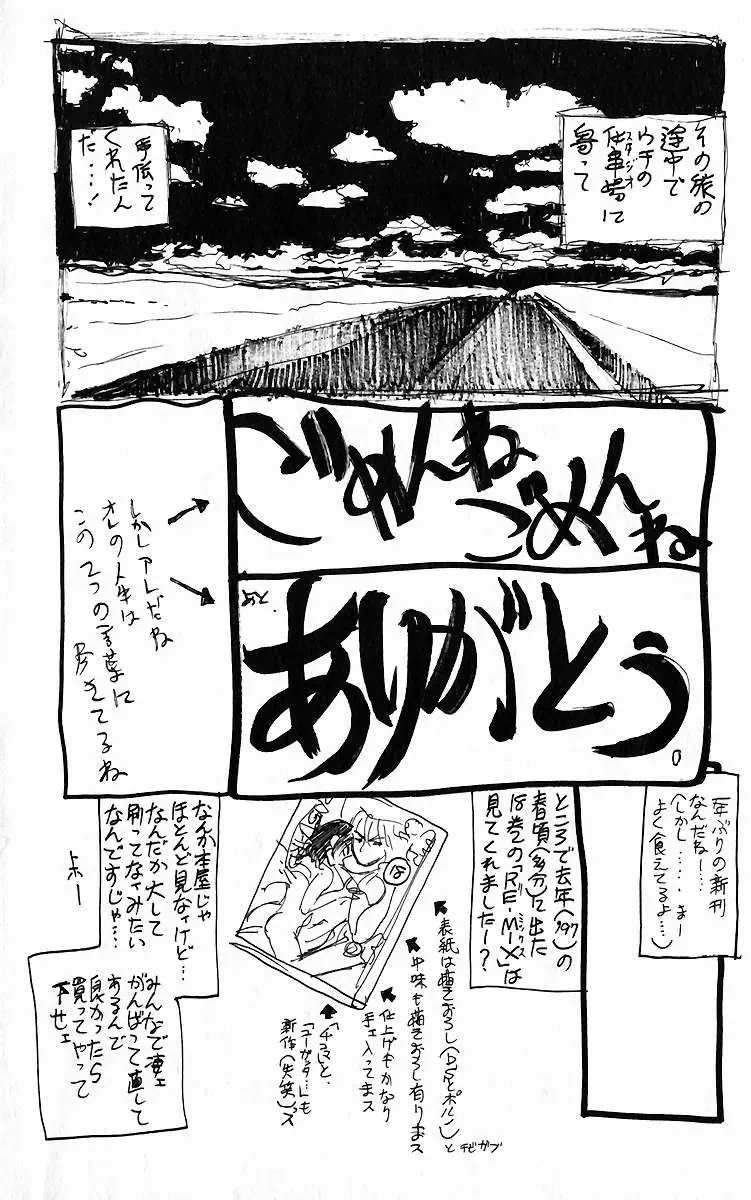 その旅の
途中で
ウチの
仕事場に
スタジオ
寄って
手伝って
くれたん
だ…!
ごめんね
ごめんね
あと、
ありがとう。
しかしアレだね
オレの人生は
この2つの言葉に
尽きてるね
1年ぶりの新刊
なんだねー……
(しかし……まー
よく食えてるよ…)
ところで去年('97)の
春頃(多分)に出た
18巻の「RE-MIX」は
ミックス
見てくれましたー?
表紙は描きおろし(DSとポルン)と
チビガブ
中味も描きおろし有りまス
仕上げもかなり
手ェ入ってまス
「チョコ」と、
も
新作(失笑)ズ
なんか本屋じゃ
ほとんど見なィけど…
なんだか大して
刷ってなィみたい
なんですじゃ…
よー
みんなで凄ェ
がんばって直して
あるんで
良かったら
買ってやって
下せェ